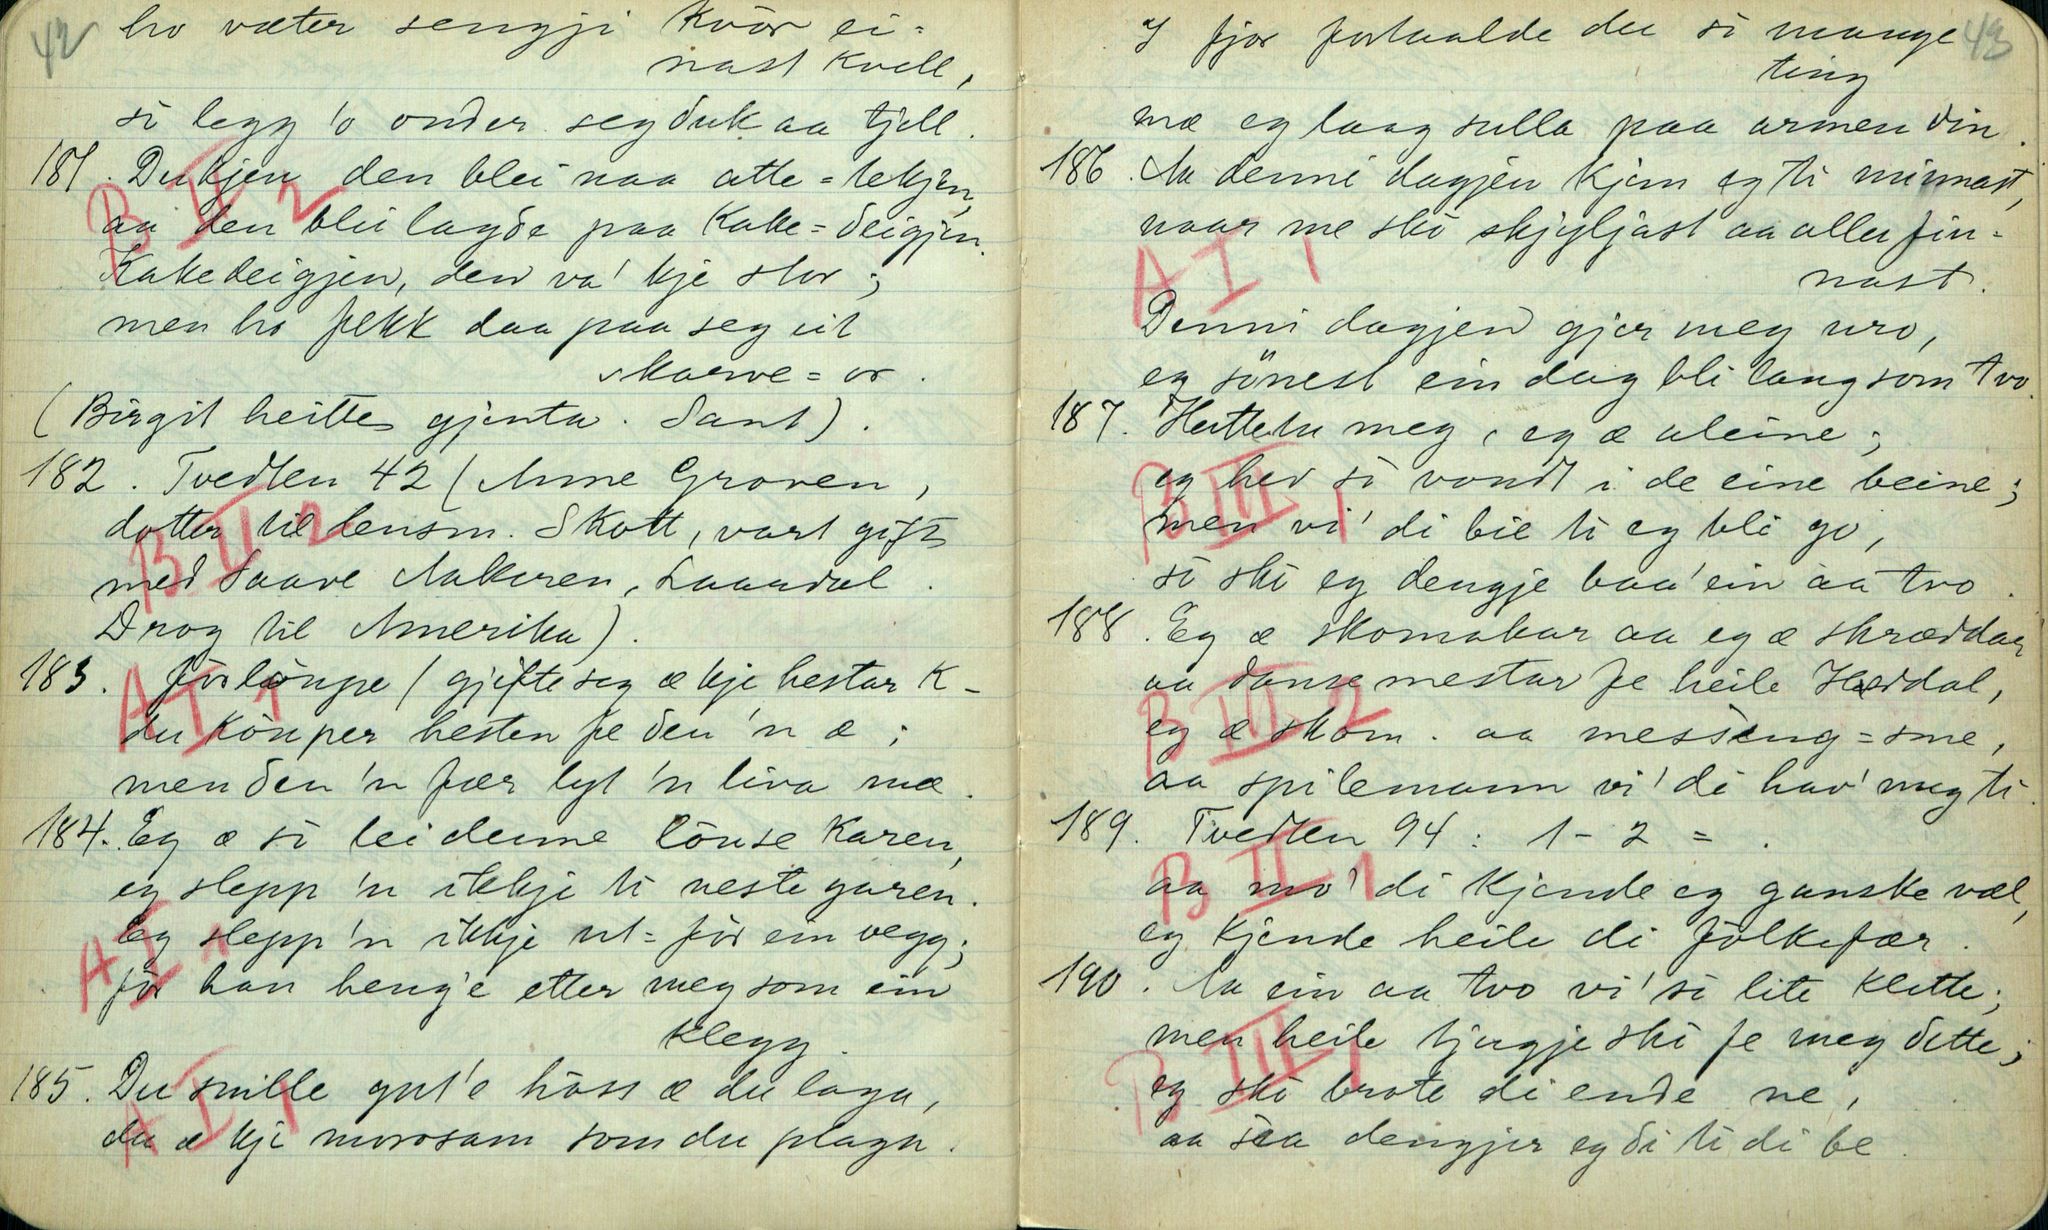 42
ho væter sengji kvör ei=
nast kvell,
si legg 'o onder seg duk aa tjell.
181. Du kjen den blei naa atte=lekjen,
aa den blei lagde paa Kake=deigjen.
Kakedeigjen, den va' kje stor;
men ho fekk daa paa seg eit
skarve=or.
(Birgit heitte gjenta. Sant).
B II 2
182. Tvedten 42 (Anne Groven,
dotter til lensm. Skott, vart gift
med Saave Aakeren, Laardal.
Drog til Amerika).
B II 2
183. Förlöupe (gjifte seg æ kje hestar k-
du köuper hesten fe den 'n æ;
men den 'n fær lyt 'n liva mæ.
A I 1
184. Eg æ si lei denne löuse Karen,
eg slepp 'n ikkje ti neste garen.
Eg slepp 'n ikkje ut=för ein vegg;
för han heng'e etter meg som ein
klegg.
A I 1
185. Du snille gut'e håss æ du laga,
du æ kje morosam som du plaga.
A I 1
43
I fjor fortaalde du si mange
ting
mæ eg laag sulla paa armen din.
186. Aa denni dagjen kjem eg ti minnast,
naar me ski skjiljast aa aller fin=
nast.
Denni dagjen gjer meg uro,
eg sönest ein dag bli lang som tvo.
A I 1
187. Hutte tu meg, eg æ aleine;
eg hev si vondt i de eine beine;
men vi' di bie ti eg bli go,
si ski eg dengje baa' ein aa tvo.
B III 1
188. Eg æ skomakar aa eg æ skræddar
aa dansemestar fe heile Hæddal,
eg æ skom. aa messing=sme,
aa spilemann vi' di hav' meg ti.
B III 2
189. Tvedten 94: 1-2 = .
aa mo' di kjende eg ganske væl,
eg kjende heile di fölkefær.
B II 1
190. Aa ein aa tvo vi' si lite kletta;
men heile tjugje ski fe meg dette;
eg ski brote di ende ne,
aa sia dengjer eg di ti di be.
B III 1